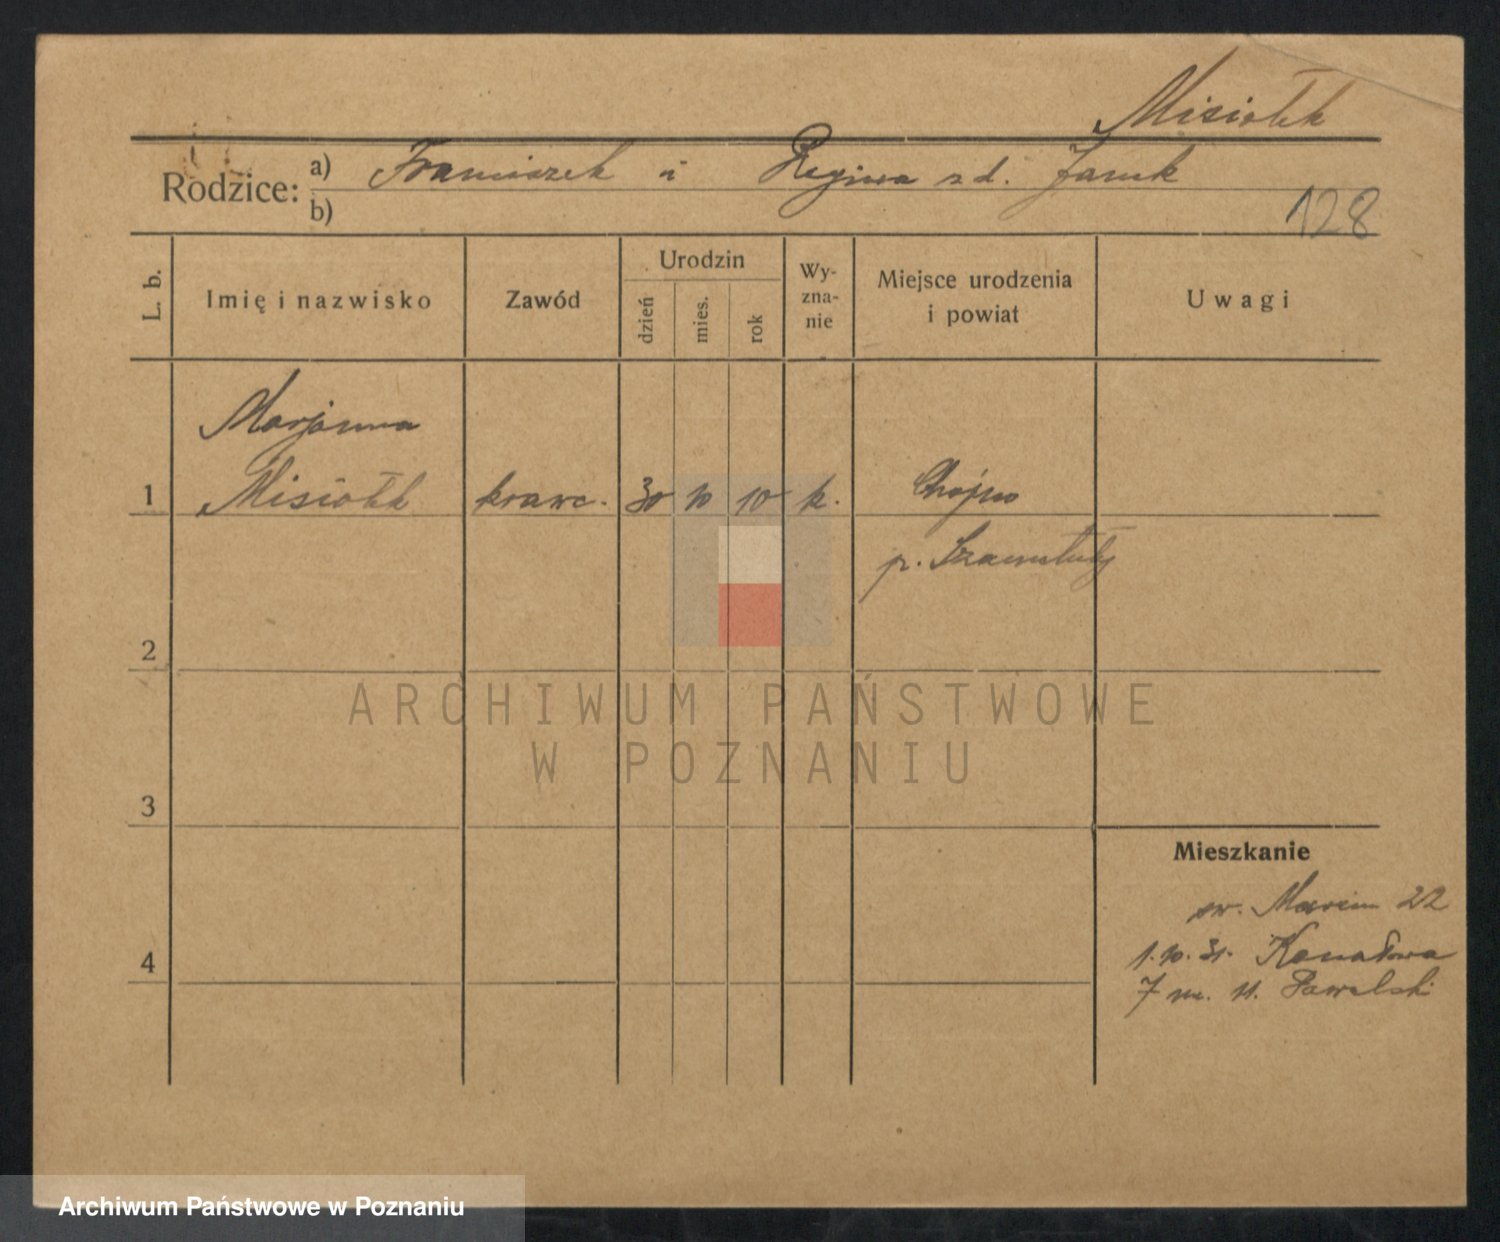 Misiołek
Rodzice: a) Franciszek i Regina z d. Januk
b)
128
L. b.
Imię i nazwisko
Zawód
Urodzin
dzień
mies.
rok
Wy-
zna-
nie
Miejsce urodzenia
i powiat
Uwagi
Marjanna
1 Misiołek krawc. 30 10 10 k. Chojno
p. Szamotuły
2
ARCHIWUM PAŃSTWOWE
W POZNANIU
3
Mieszkanie
św. Marcin 22
4 1.10.31. Kanałowa
7 m. 11. Pawelski
Archiwum Państwowe w Poznaniu